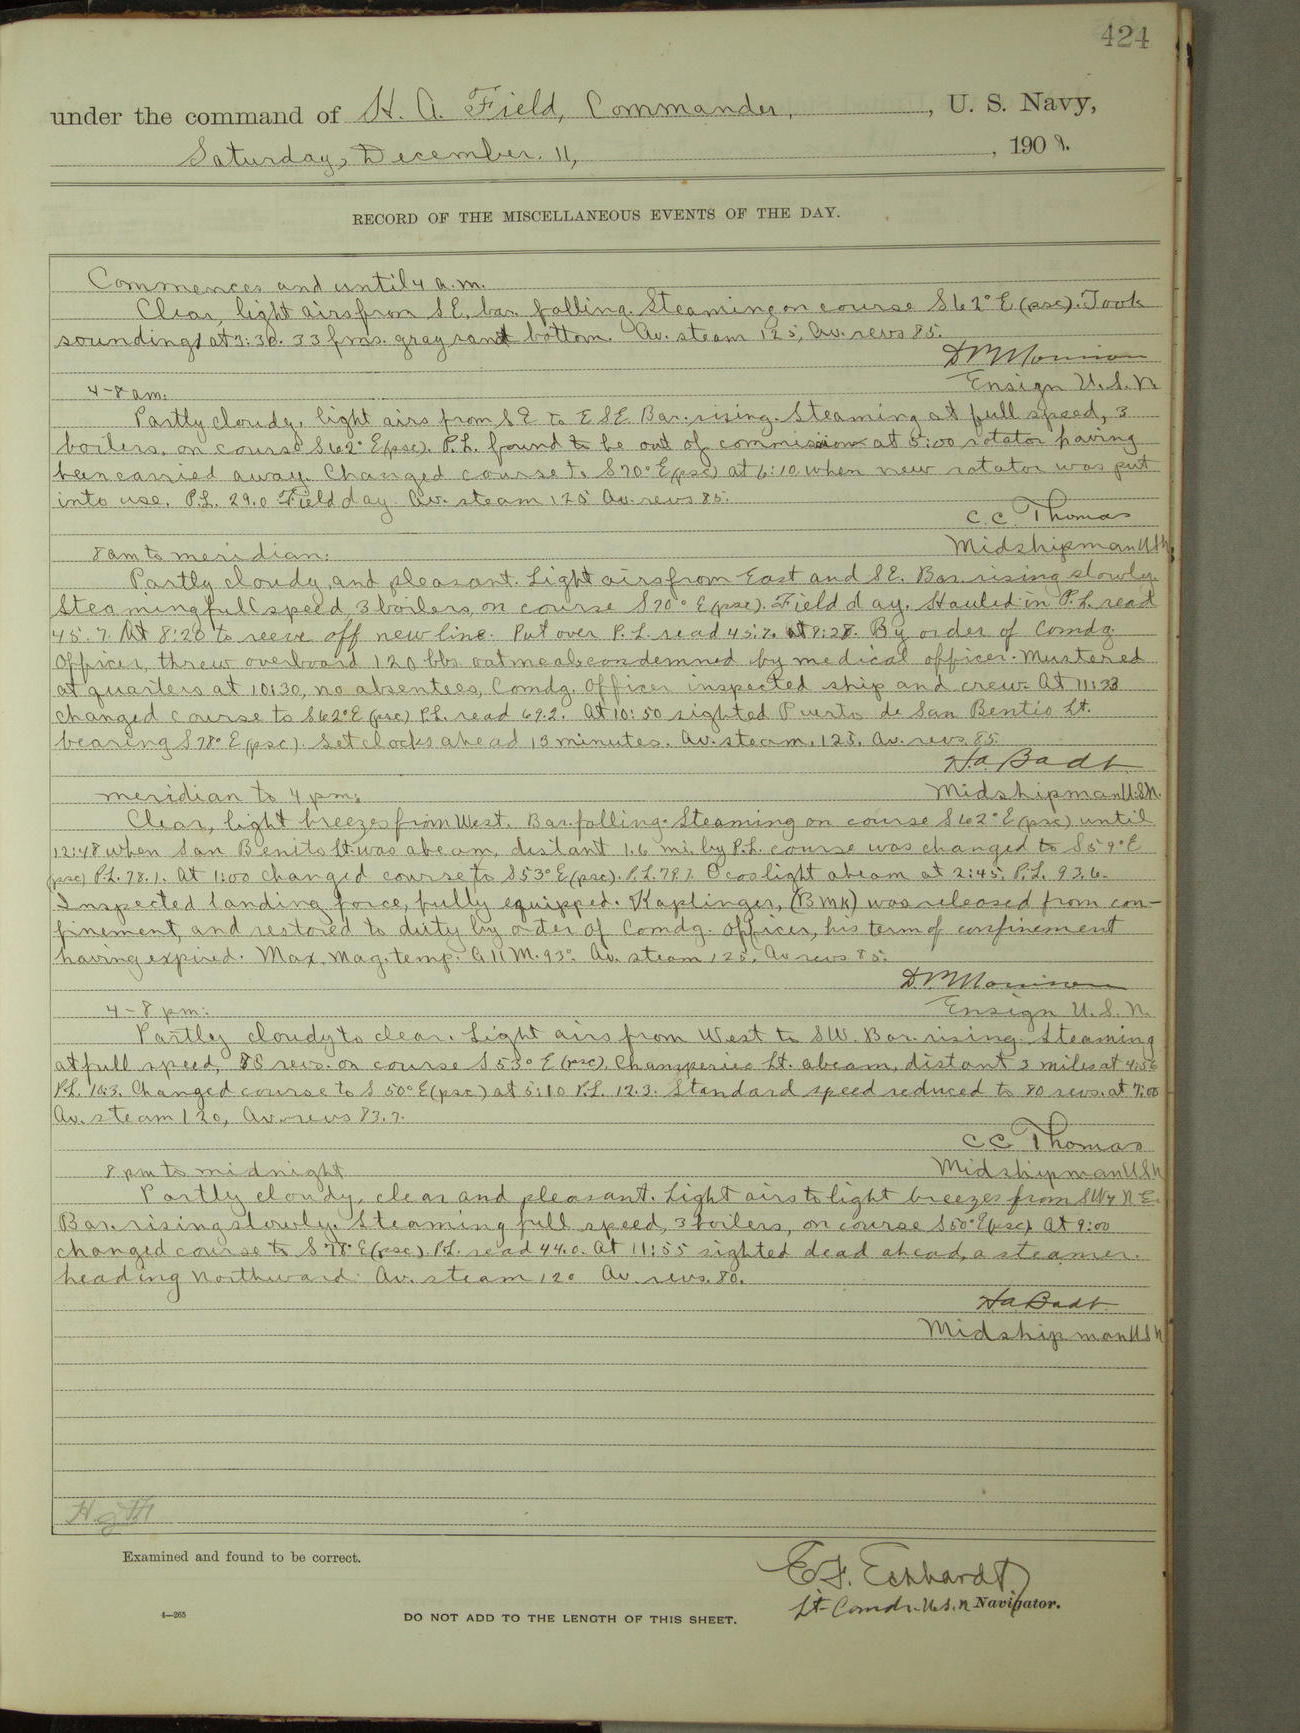 424
under the command of H. A. Field, Commander, , U. S. Navy,
Saturday, December 11, , 1909.
RECORD OF THE MISCELLANEOUS EVENTS OF THE DAY.
Commences and until 4 a.m.
Clear, light airs from S E. bar. falling. Steaming on course S 62° E (psc). Took
sounding at 3:30. 33 fms. gray sand bottom. Av. steam 125, Av. revs 85.
D M Morrison
Ensign U. S. N.
4-8 am:
Partly cloudy, light airs from S E to E S E. Bar. rising. Steaming at full speed, 3
boilers, on course S 62° E (psc). P.L. found to be out of commission at 5:00 rotator having
been carried away. Changed course to S 70° E (psc) at 6:10 when new rotator was put
into use. P.L. 29.0 Field day. Av. steam 125 Av. revs 85.
C. C. Thomas
Midshipman U S N
8 am to meridian:
Partly cloudy, and pleasant. Light airs from East and S E. Bar. rising slowly.
Steaming full speed, 3 boilers, on course S 70° E (psc). Field day. Hauled in P. L. read
45.7. At 8:20 to reeve off new line. Put over P. L. read 45.7. At 8:28. By order of Comdg.
Officer, threw overboard 120 lbs oatmeal condemned by medical officer. Mustered
at quarters at 10:30, no absentees, Comdg. Officer inspected ship and crew. At 11:23
changed course to S 62° E (psc) P.L. read 69.2. At 10:50 sighted Puerto de San Bentio Lt.
bearing S 78° E (psc). Set clocks ahead 13 minutes. Av. steam, 125, Av. revs. 85.
H. A. Badt
Midshipman U.S.N.
meridian to 4 pm:
Clear, light breezes from West. Bar. falling. Steaming on course S 62° E (psc) until
12:48 when San Benito Lt. was abeam, distant 1.6 mi. by P.L. course was changed to S 59° E
(psc) P.L. 78.1. At 1:00 changed course to S 53° E (psc). P.L. 79.7. Ocos light abeam at 2:45, P.L. 93.6.
Inspected landing force, fully equipped. Kaplinger, (B Mk) was released from con-
finement, and restored to duty by order of Comdg. Officer, his term of confinement
having expired. Max. Mag. temp. G 11 M. 93°. Av. steam 125, Av revs 85.
D. M Morrison
Ensign U. S. N.
4-8 pm:
Partly cloudy to clear. Light airs from West to S W. Bar. rising. Steaming
at full speed, 85 revs. on course S 53° E (psc). Champerico Lt. abeam, distant 3 miles at 4:56
P.L. 10.3. Changed course to S 50° E (psc) at 5:10 P.L. 12.3. Standard speed reduced to 80 revs. at 7:00
Av. steam 120, Av. revs 83.7.
C C Thomas
Midshipman U S N
8 pm to midnight
Partly cloudy, clear and pleasant. Light airs to light breezes from S W & N E.
Bar. rising slowly. Steaming full speed, 3 boilers, on course S 50° E (psc). At 9:00
changed course to S 78° E (psc). P.L. read 44.0. At 11:55 sighted dead ahead, a steamer
heading Northward. Av. steam 120 Av. revs. 80.
H A Badt
Midshipman U S N
Examined and found to be correct.
E. F. Eckhardt
Lt-Comdr. U. S. N Navigator.
4—265
DO NOT ADD TO THE LENGTH OF THIS SHEET.